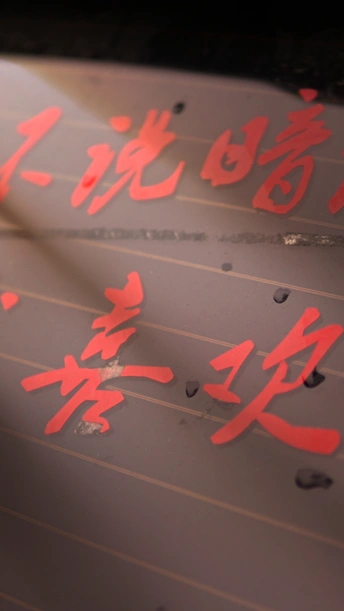 不说暗
喜欢